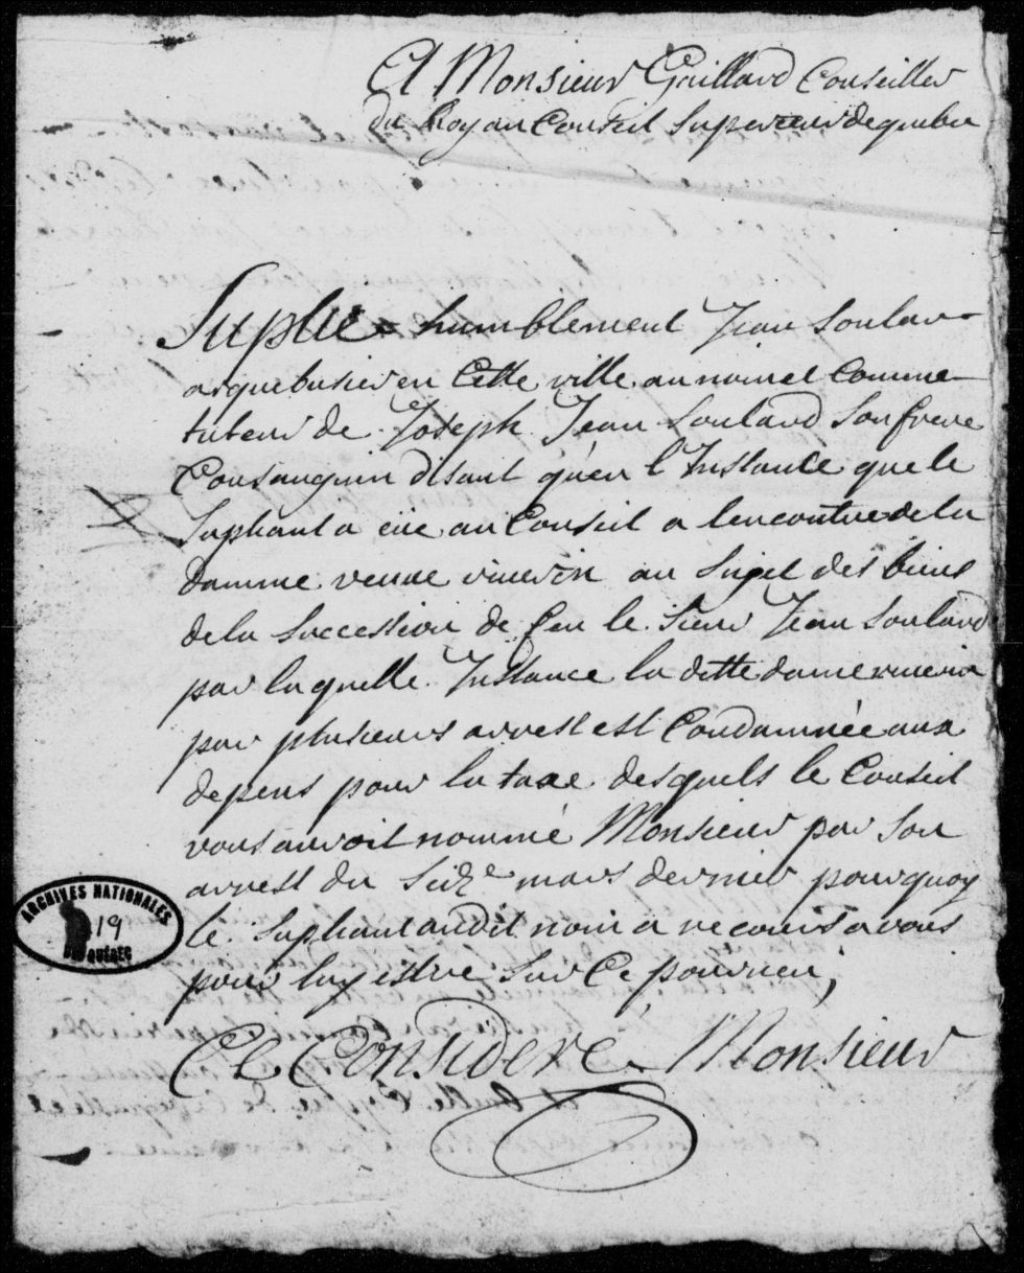 A Monsieur Gaillard Conseiller
du Roy au Conseil Superieur de quebec
Suplie humblement Jean Soulard
arquebusier en Cette ville au nom et Comme
tuteur de Joseph Jean Soulard Son frere
Consanguin disant qu'en l'Instance que le
Supliant a eüe au Conseil a lencontre de la
damme veuve vincin au Sujet des biens
de la Succession de feu le Sieur Jean Soulard
par laquelle Instance la ditte dame vincin
par plusieurs arrest est Condamnée aux
depens pour la taxe desquels le Conseil
vous auroit nommé Monsieur par Son
arrest du Seize mars dernier pourquoy
le Supliant audit nom a recours a vous
pour luy estre Sur Ce pourveu,
Ce Consideré Monsieur
ARCHIVES NATIONALES
19
DU QUÉBEC